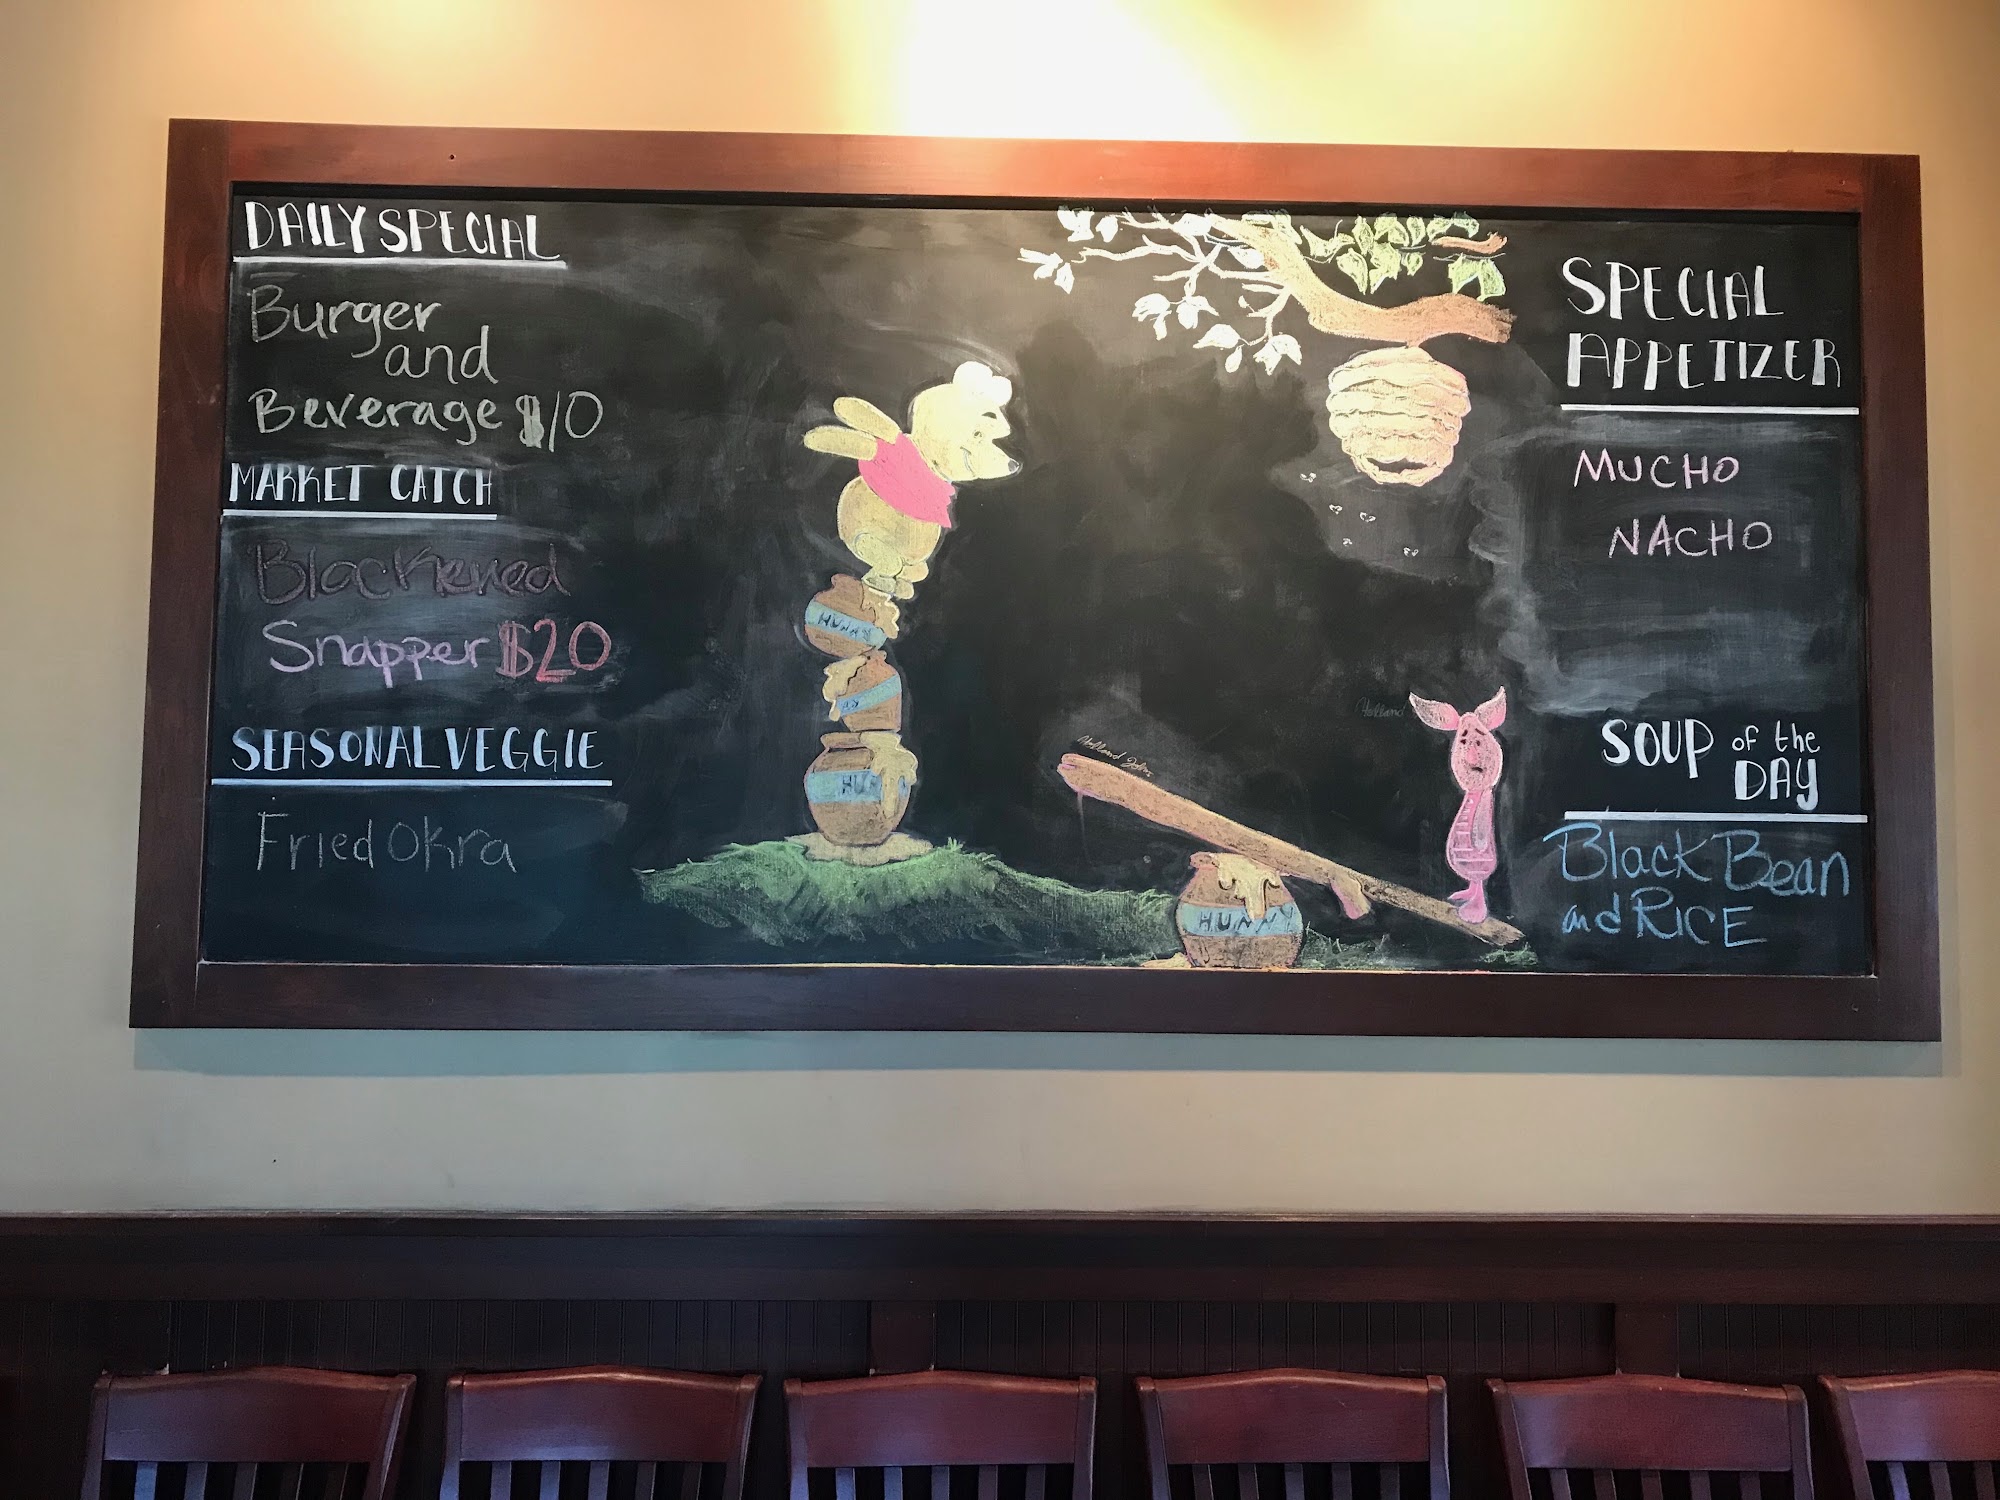 DAILY SPECIAL
Burger
and
Beverage $10
MARKET CATCH
Blackened
Snapper $20
SEASONAL VEGGIE
Fried Okra
HUNNY
HU
Holland
Holland
HUNNY
SPECIAL
APPETIZER
MUCHO
NACHO
SOUP of the
DAY
Black Bean
and RICE